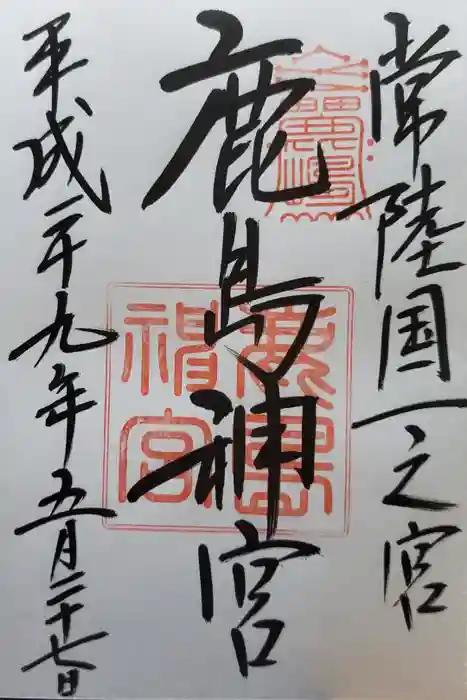 常陸国一之宮
鹿島神宮
平成二十九年五月二十七日
鹿島神宮